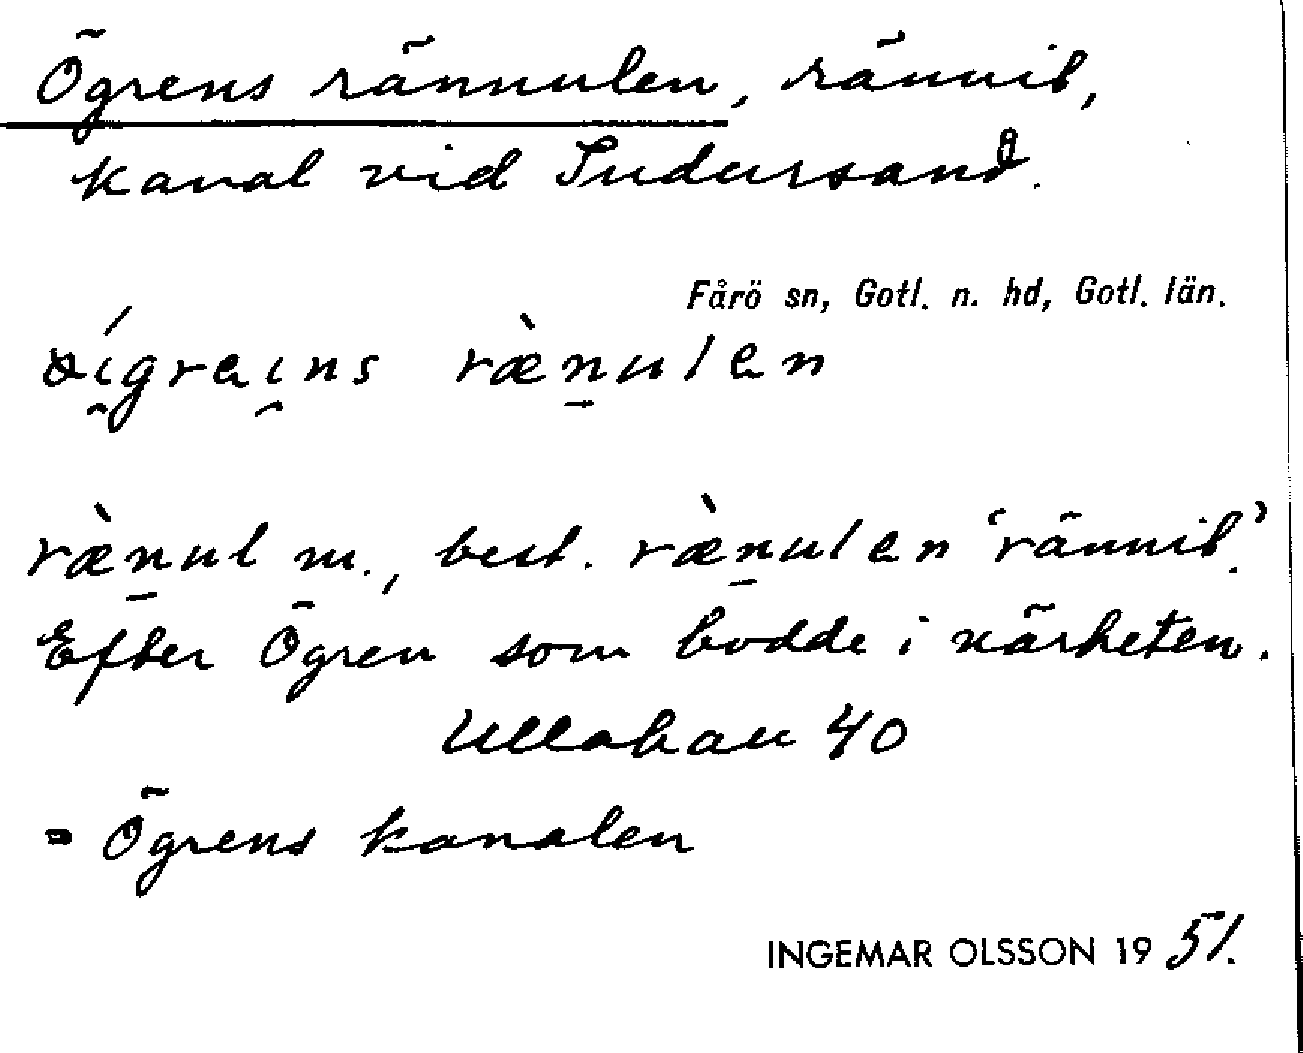 Ögrens rännulen, rännil,
kanal vid Sudersand.
Fårö sn, Gotl. n. hd, Gotl. län.
rænulen
rænul m., best. rænulen 'rännil'.
Efter Ögren som bodde i närheten.
Ullahau 40
= Ögrens kanalen
INGEMAR OLSSON 19 51.